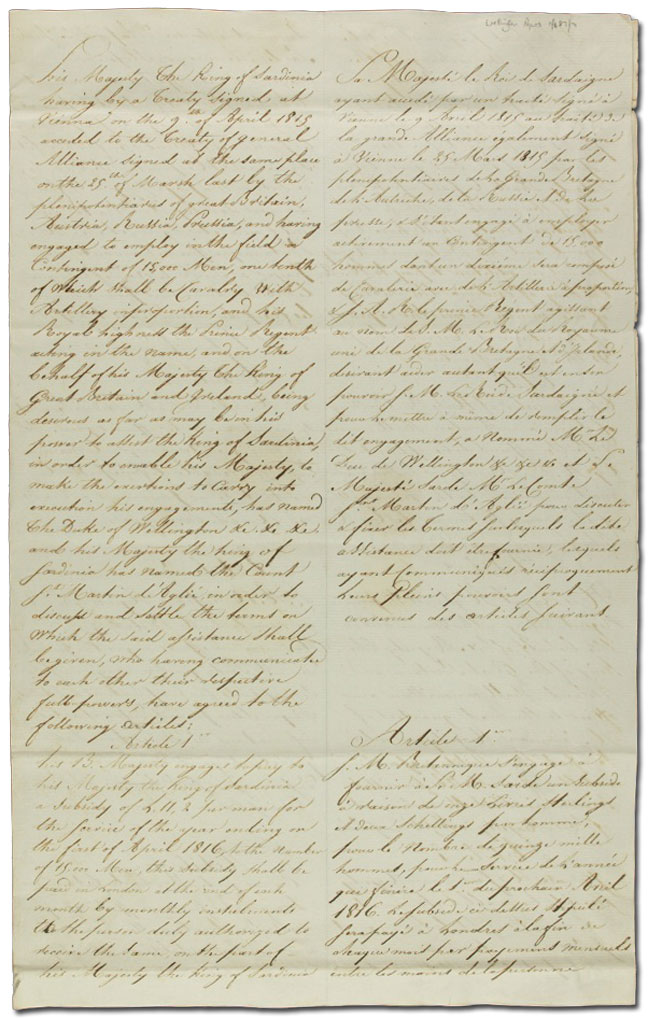 his Majesty the King of Sardinia
having by a Treaty signed, at
Vienna on the 9th of April 1815
acceded to the Treaty of general
Alliance signed at the same place
on the 25th of Marsh last by the
plenipotentiaries of great Britain,
Austria, Russia, Prussia, and having
engaged to employ in the field a
Contingent of 15,000 Men, one tenth
of which shall be Cavalry with
Artillery in proportion, and his
Royal highness the Prince Regent
acting in the name, and on the
behalf of his Majesty the King of
Great Britain and Ireland, being
desirous as far as may be in his
power to assist the King of Sardinia,
in order to enable his Majesty, to
make the exertions to carry into
execution his engagements, has named
the Duke of Wellington &c. &c. &c.
and his Majesty the King of
Sardinia has named the Count
St. Martin d'Aglie, in order to
discuss and settle the terms on
which the said assistance shall
be given, who having communicated
to each other their respective
full powers, have agreed to the
following articles;
Article 1st
his B. Majesty engages to pay to
his Majesty the King of Sardinia
a Subsidy of L. 11. 2 per man for
the service of the year ending on
the first of April 1816, to the number
of 15,000 Men, this subsidy shall be
paid in London at the end of each
month by monthly instalments
to the person duly authorized to
receive the same, on the part of
his Majesty the King of Sardinia
Sa Majesté le Roi de Sardaigne
ayant accédé par un traité signé à
Vienne le 9 Avril 1815 au traité de
la grande Alliance également signé
à Vienne le 25 Mars 1815 par les
plenipotentiaires de la Grande Bretagne
de l'Autriche, de la Russie et de la
Prusse, et s'étant engagé à employer
activement un Contingent de 15,000
hommes dont un dixième sera composé
de Cavalerie avec de l'Artillerie à proportion,
& S. A. R. le prince Regent agissant
au nom de S. M. Le Roi du Royaume
uni de la Grande Bretagne et d'Irlande,
désirant aider autant qu'il est en son
pouvoir S. M. Le Roi de Sardaigne et
pour le mettre à même de remplir le
dit engagement, a Nommé Mr. Le
Duc de Wellington &c &c &c et Sa
Majesté Sarde Mr. Le Comte
St. Martin d'Aglié pour discuter
& fixer les termes sur lesquels la dite
assistance doit être fournie, lesquels
ayant communiqués réciproquement
leurs Pleins pouvoirs sont
convenus des articles suivant
Article 1er
S. M. Britannique s'engage à
fournir à S. M. Sarde un Subside
à raison de onze Livres Sterlings
et deux Schellings par homme,
pour le Nombre de quinze mille
hommes, pour le Service de l'année
que finira le 1er du prochain Avril
1816. Le subside ci dessus stipulé
sera payé à Londres à la fin de
chaque mois par payement mensuels
entre les mains de la personne